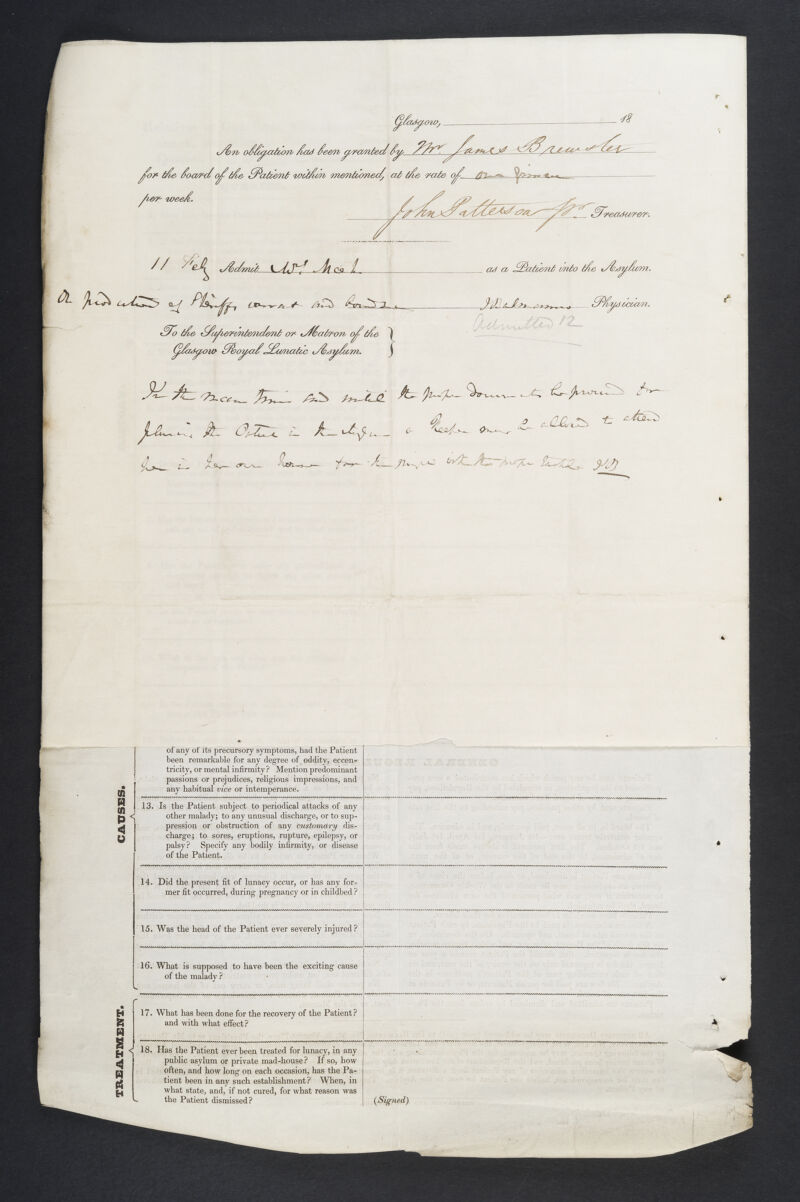 Glasgow, 18
An obligation has been granted by Mr James Brewster
for the board of the Patient within mentioned, at the rate of one
per week.
John Patterson Jr. Treasurer.
11 Feby Admit Mrs as a Patient into the Asylum.
On production of Sheriffs warrant and Physician.
Admitted 12
To the Superintendent or Matron of the
Glasgow Royal Lunatic Asylum.
In the mean time and until the proper Documents be procured for
placing the Patient in the Asylum a Keeper may be allowed to attend
her in her own house for the
of any of its precursory symptoms, had the Patient
been remarkable for any degree of oddity, eccen-
tricity, or mental infirmity? Mention predominant
passions or prejudices, religious impressions, and
any habitual vice or intemperance.
CAUSES.
13. Is the Patient subject to periodical attacks of any
other malady; to any unusual discharge, or to sup-
pression or obstruction of any customary dis-
charge; to sores, eruptions, rupture, epilepsy, or
palsy? Specify any bodily infirmity, or disease
of the Patient.
14. Did the present fit of lunacy occur, or has any for-
mer fit occurred, during pregnancy or in childbed?
15. Was the head of the Patient ever severely injured?
16. What is supposed to have been the exciting cause
of the malady?
TREATMENT.
17. What has been done for the recovery of the Patient?
and with what effect?
18. Has the Patient ever been treated for lunacy, in any
public asylum or private mad-house? If so, how
often, and how long on each occasion, has the Pa-
tient been in any such establishment? When, in
what state, and, if not cured, for what reason was
the Patient dismissed?
(Signed)